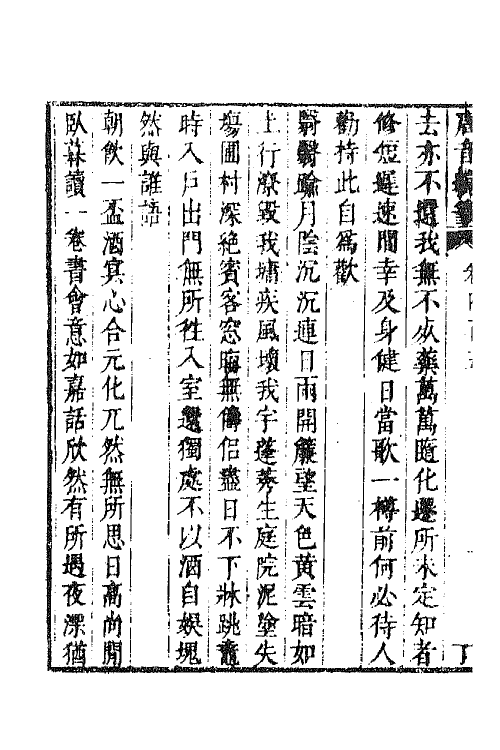 去亦不還我無不死藥萬萬隨化遷所未定知者
修短遲速間幸及身健日當歌一樽前何必待人
勸持此自為歡
翳翳踰月陰沉沉連日雨開簾望天色黃雲暗如
土行潦毀我墉疾風壞我宇蓬莠生庭院泥塗失
場圃村深絕賓客窓晦無儔侶盡日不下牀跳鼃
時入戶出門無所徃入室還獨處不以酒自娛塊
然與誰語
朝飲一盃酒冥心合元化兀然無所思日高尚閒
臥暮讀一卷書會意如嘉話欣然有所遇夜深猶